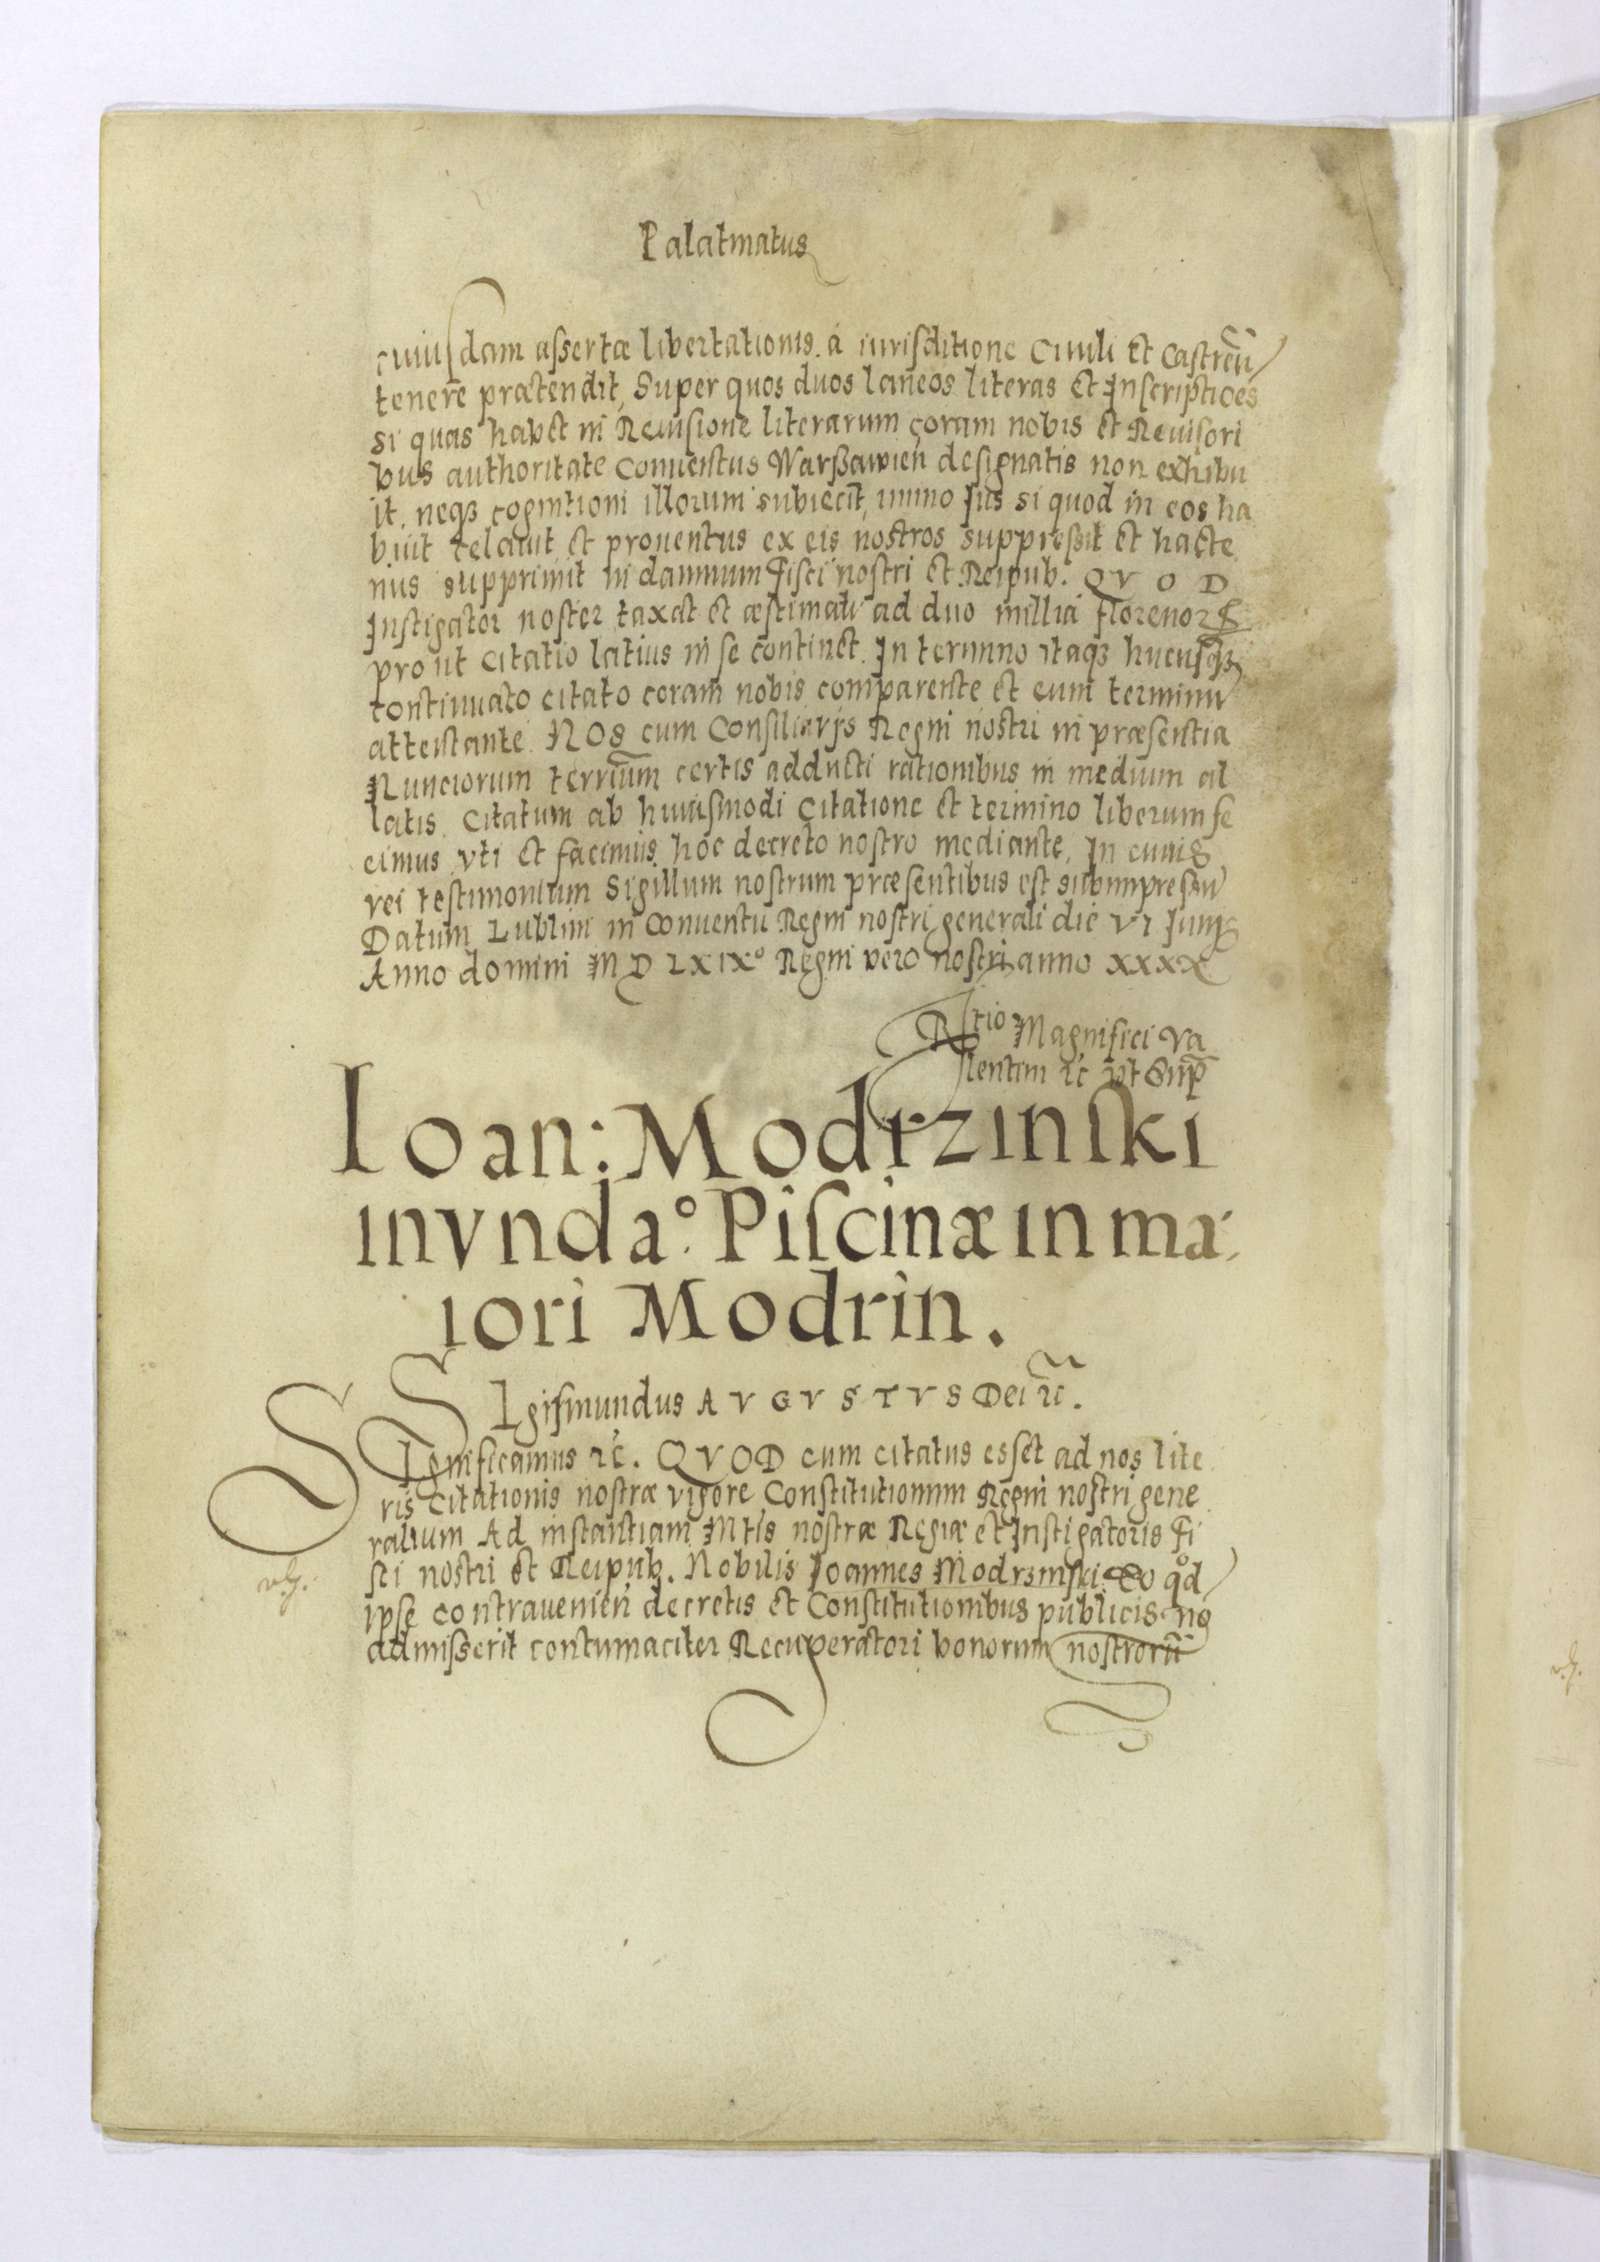 Palatinatus
cuiusdam assertæ libertationis a iurisditione Ciuili et Castreñ
tenere prætendit, Super quos duos laneos literas et Inscriptiões
si quas habet in Reuisione literarum coram nobis et Reuisori
bus authoritate Conuentus Warßawień designatis non exhibu
it, neqꝫ cognitioni illorum subiecit, immo Ius si quod in eos ha
buit celauit et prouentus ex eis nostros suppressit et hacte
nus supprimit in damnum Fisci nostri et Reipub. QVOD
Instigator noster taxat et æstimat ad duo millia florenorꝝ
prout Citatio latius in se continet. In termino itaqꝫ hucusqꝫ
continuato citato coram nobis comparente et eum terminū
attentante. NOS cum Consiliarijs Regni nostri in præsentia
Nunciorum terrium certis adducti rationibus in medium al
latis. Citatum ab huiusmodi Citatione et termino liberum fe
cimus vti et facimus hoc decreto nostro mediante, In cuius
rei testimonium Sigillum nostrum præsentibus est subimpressū
Datum Lublini in Conuentu Regni nostri generali die VI Iunij
Anno domini MDLXIXº Regni vero nostri anno XXXX
Rtio Magnifici Va
lentini ꝛc vt Sup̄
Ioan: Modrzinski
invnda°. Piscinæ in ma
iori Modrin.
SIgismundus AVGVSTVS Dei ꝛc̃.
SIgnificamus ꝛc. QVOD cum citatus esset ad nos lite
ris Citationis nostræ vigore Constitutionum Regni nostri gene
ralium Ad instantiam Mtis nostræ Regiæ et Instigatoris Fi
sci nostri et Reipub. Nobilis Ioannes Modrzinski Eo qd
ipse contravenień decretis et Constitutionibus publicis nō
admisserit contumaciter Recuperatori bonorum nostrorū